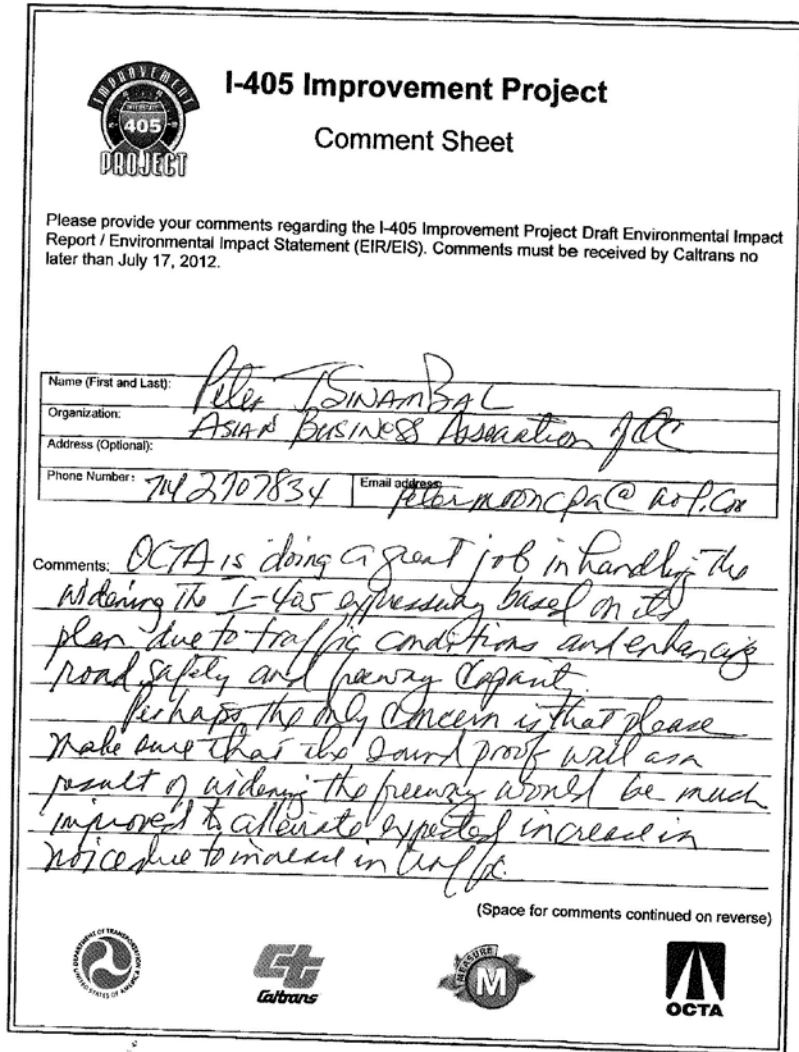 IMPROVEMENT
INTERSTATE
405
PROJECT
I-405 Improvement Project
Comment Sheet
Please provide your comments regarding the I-405 Improvement Project Draft Environmental Impact
Report / Environmental Impact Statement (EIR/EIS). Comments must be received by Caltrans no
later than July 17, 2012.
Name (First and Last): Peter TSINAMBAL
Organization: ASIAN BUSINESS Association of OC
Address (Optional):
Phone Number: 714 2707834 Email address: petermooncpa@aol.com
Comments: OCTA is doing a great job in handling the
widening the I-405 expressway based on its
plan due to traffic conditions and enhancing
road safety and freeway capacity
Perhaps the only concern is that please
make sure that the sound proof wall as a
result of widening the freeway would be much
improved to alleviate expected increase in
noice due to increase in traffic.
(Space for comments continued on reverse)
DEPARTMENT OF TRANSPORTATION
UNITED STATES OF AMERICA
Ct
Caltrans
MEASURE
M
OCTA